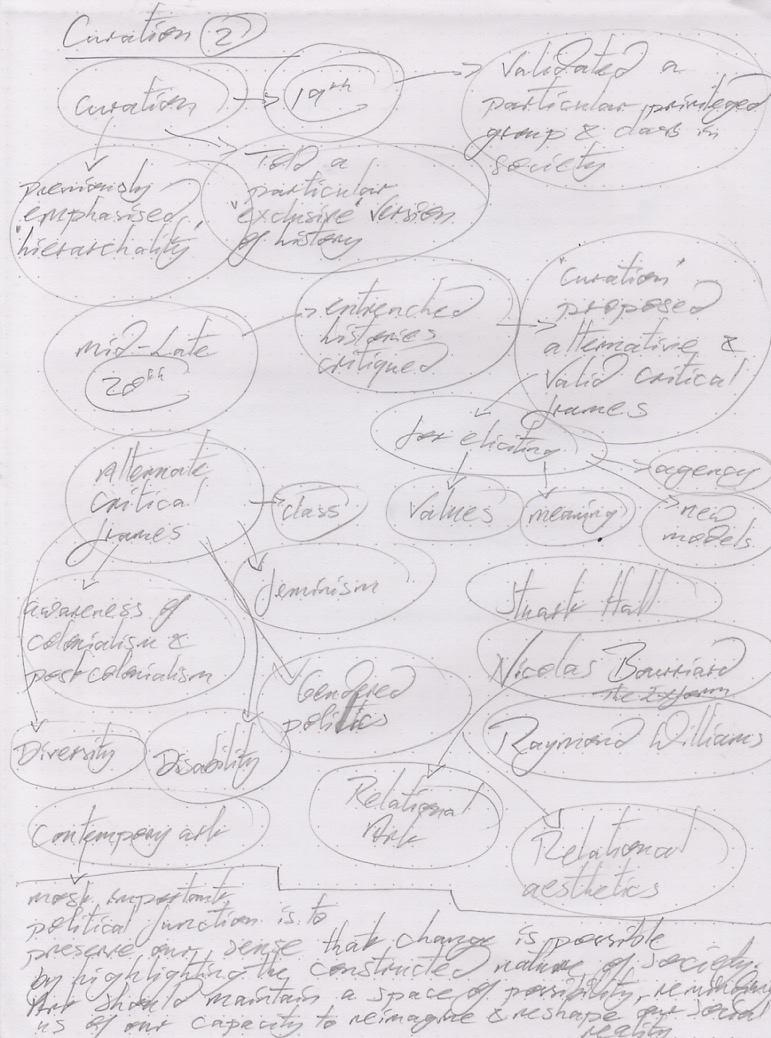 Curation 2
curation
19th
validated a
particular privileged
group & class in
society
previously
emphasised
'hierarchality'
Told a
particular
'exclusive' version
of history
Mid-Late
20th
entrenched
histories
critiqued
'curation'
proposed
alternative &
valid critical
frames
for eliciting
values
meaning
agency
new
models
Alternate
critical
frames
class
feminism
awareness of
colonialism &
postcolonialism
Gendered
politics
Diversity
Disability
Stuart Hall
Nicolas Bourriard
The Exform
Raymond Williams
Relational
Art
Relational
aesthetics
Contempory art
most important
political function is to
preserve our sense that change is possible
by highlighting the constructed nature of society.
Art should maintain a space of possibility, reminding
us of our capacity to reimagine & reshape our social
reality